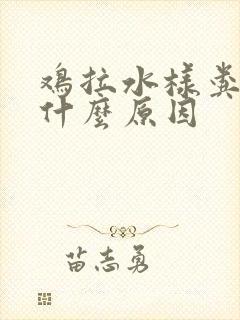 鸡拉水样粪
什麼原因
苗志勇